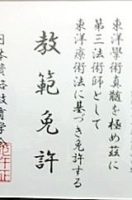 東洋學術真髄を極め茲に
第三法術師として
東洋療術法に基づき免許する
教範免許